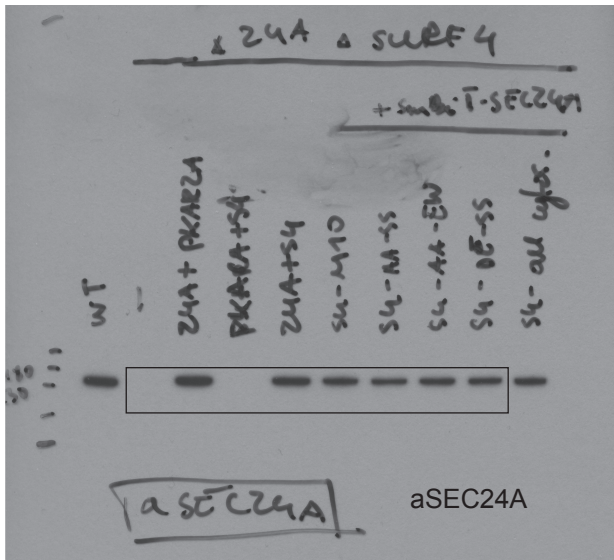 Δ 24A Δ SURF4
+ SmBiT-SEC24A
WT
-
24A + PKAR2A
PKARA + S4
24A + S4
S4 - M10
S4 - AA - SS
S4 - AA - EW
S4 - DE - SS
S4 - all
180
130
a SEC24A
aSEC24A